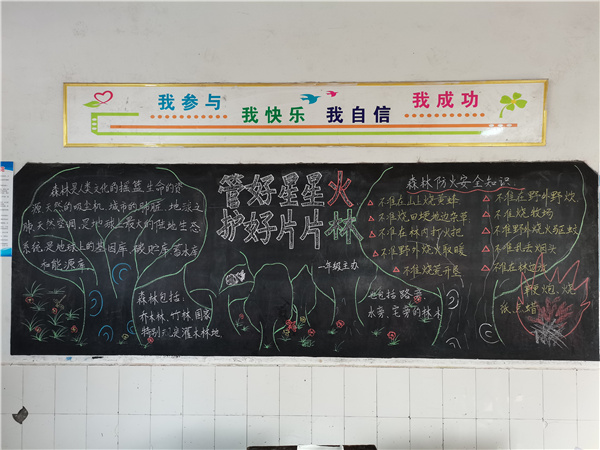 我参与 我快乐 我自信 我成功
管好星星火
护好片片林
一年级主办
森林是人类文化的摇篮,生命的资
源,天然的吸尘机,城市的肺脏,地球之
肺,天然空调,是地球上最大的陆地生态
系统,是地球上的基因库、碳贮库、蓄水库
和能源库。
森林包括:
乔木林、竹林、国家
特别规定灌木林地
也包括路旁、
水旁、宅旁的林木
森林防火安全知识
不准在山上烧黄蜂
不准烧田埂地边杂草
不准在林内打火把
不准野外烧火取暖
不准烧荒开垦
不准在野外野炊
不准烧牧场
不准野外烧火驱蚊
不准乱丢烟头
不准在林边放
鞭炮、烧
纸点蜡